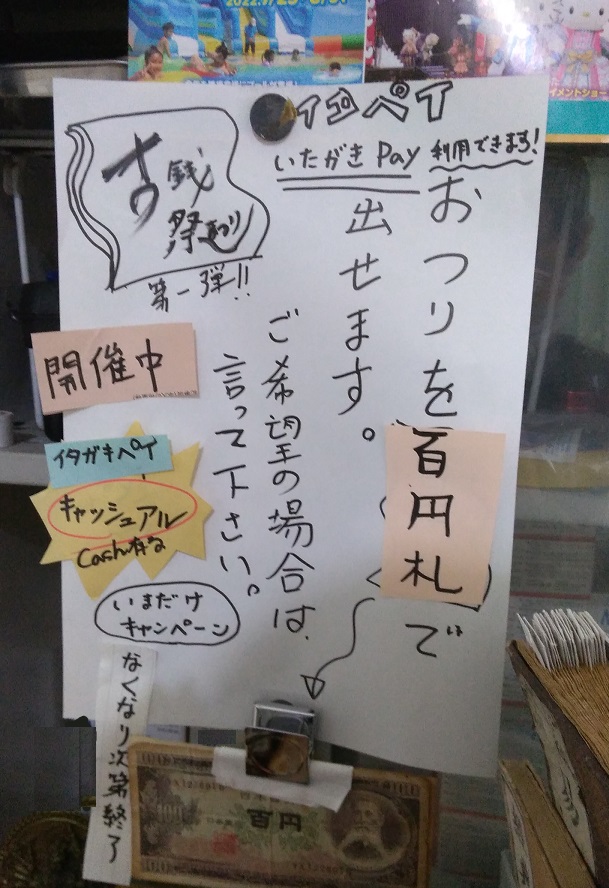 イタペイ
いたがき Pay 利用できます!
おつりを百円札で
出せます。
ご希望の場合は、
言って下さい。
古銭
祭り
第一弾!!
開催中
イタガキペイ
キャッシュアル
Cash有る
いまだけ
キャンペーン
なくなり次第終了
百円
イメントショー